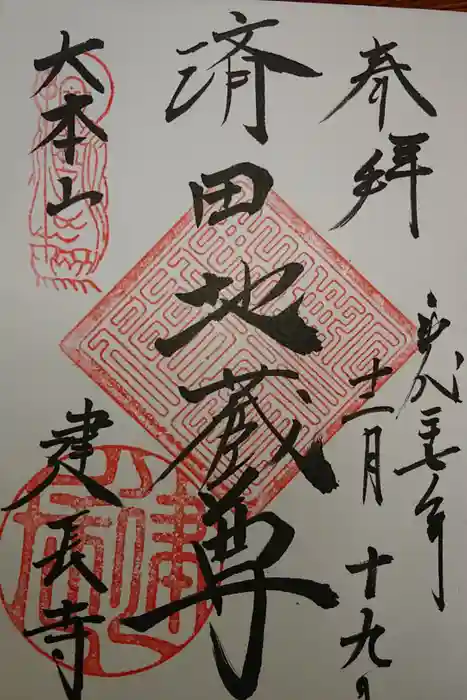 奉拝
平成二十七年
十二月十九日
済田地蔵尊
大本山
建長寺